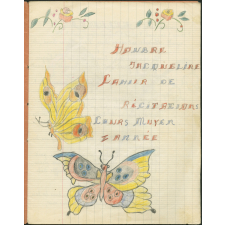 HOMBRE
JACQUELINE
CAHIER DE
RÉCITATIONS
COURS MOYEN
2 ANNÉE